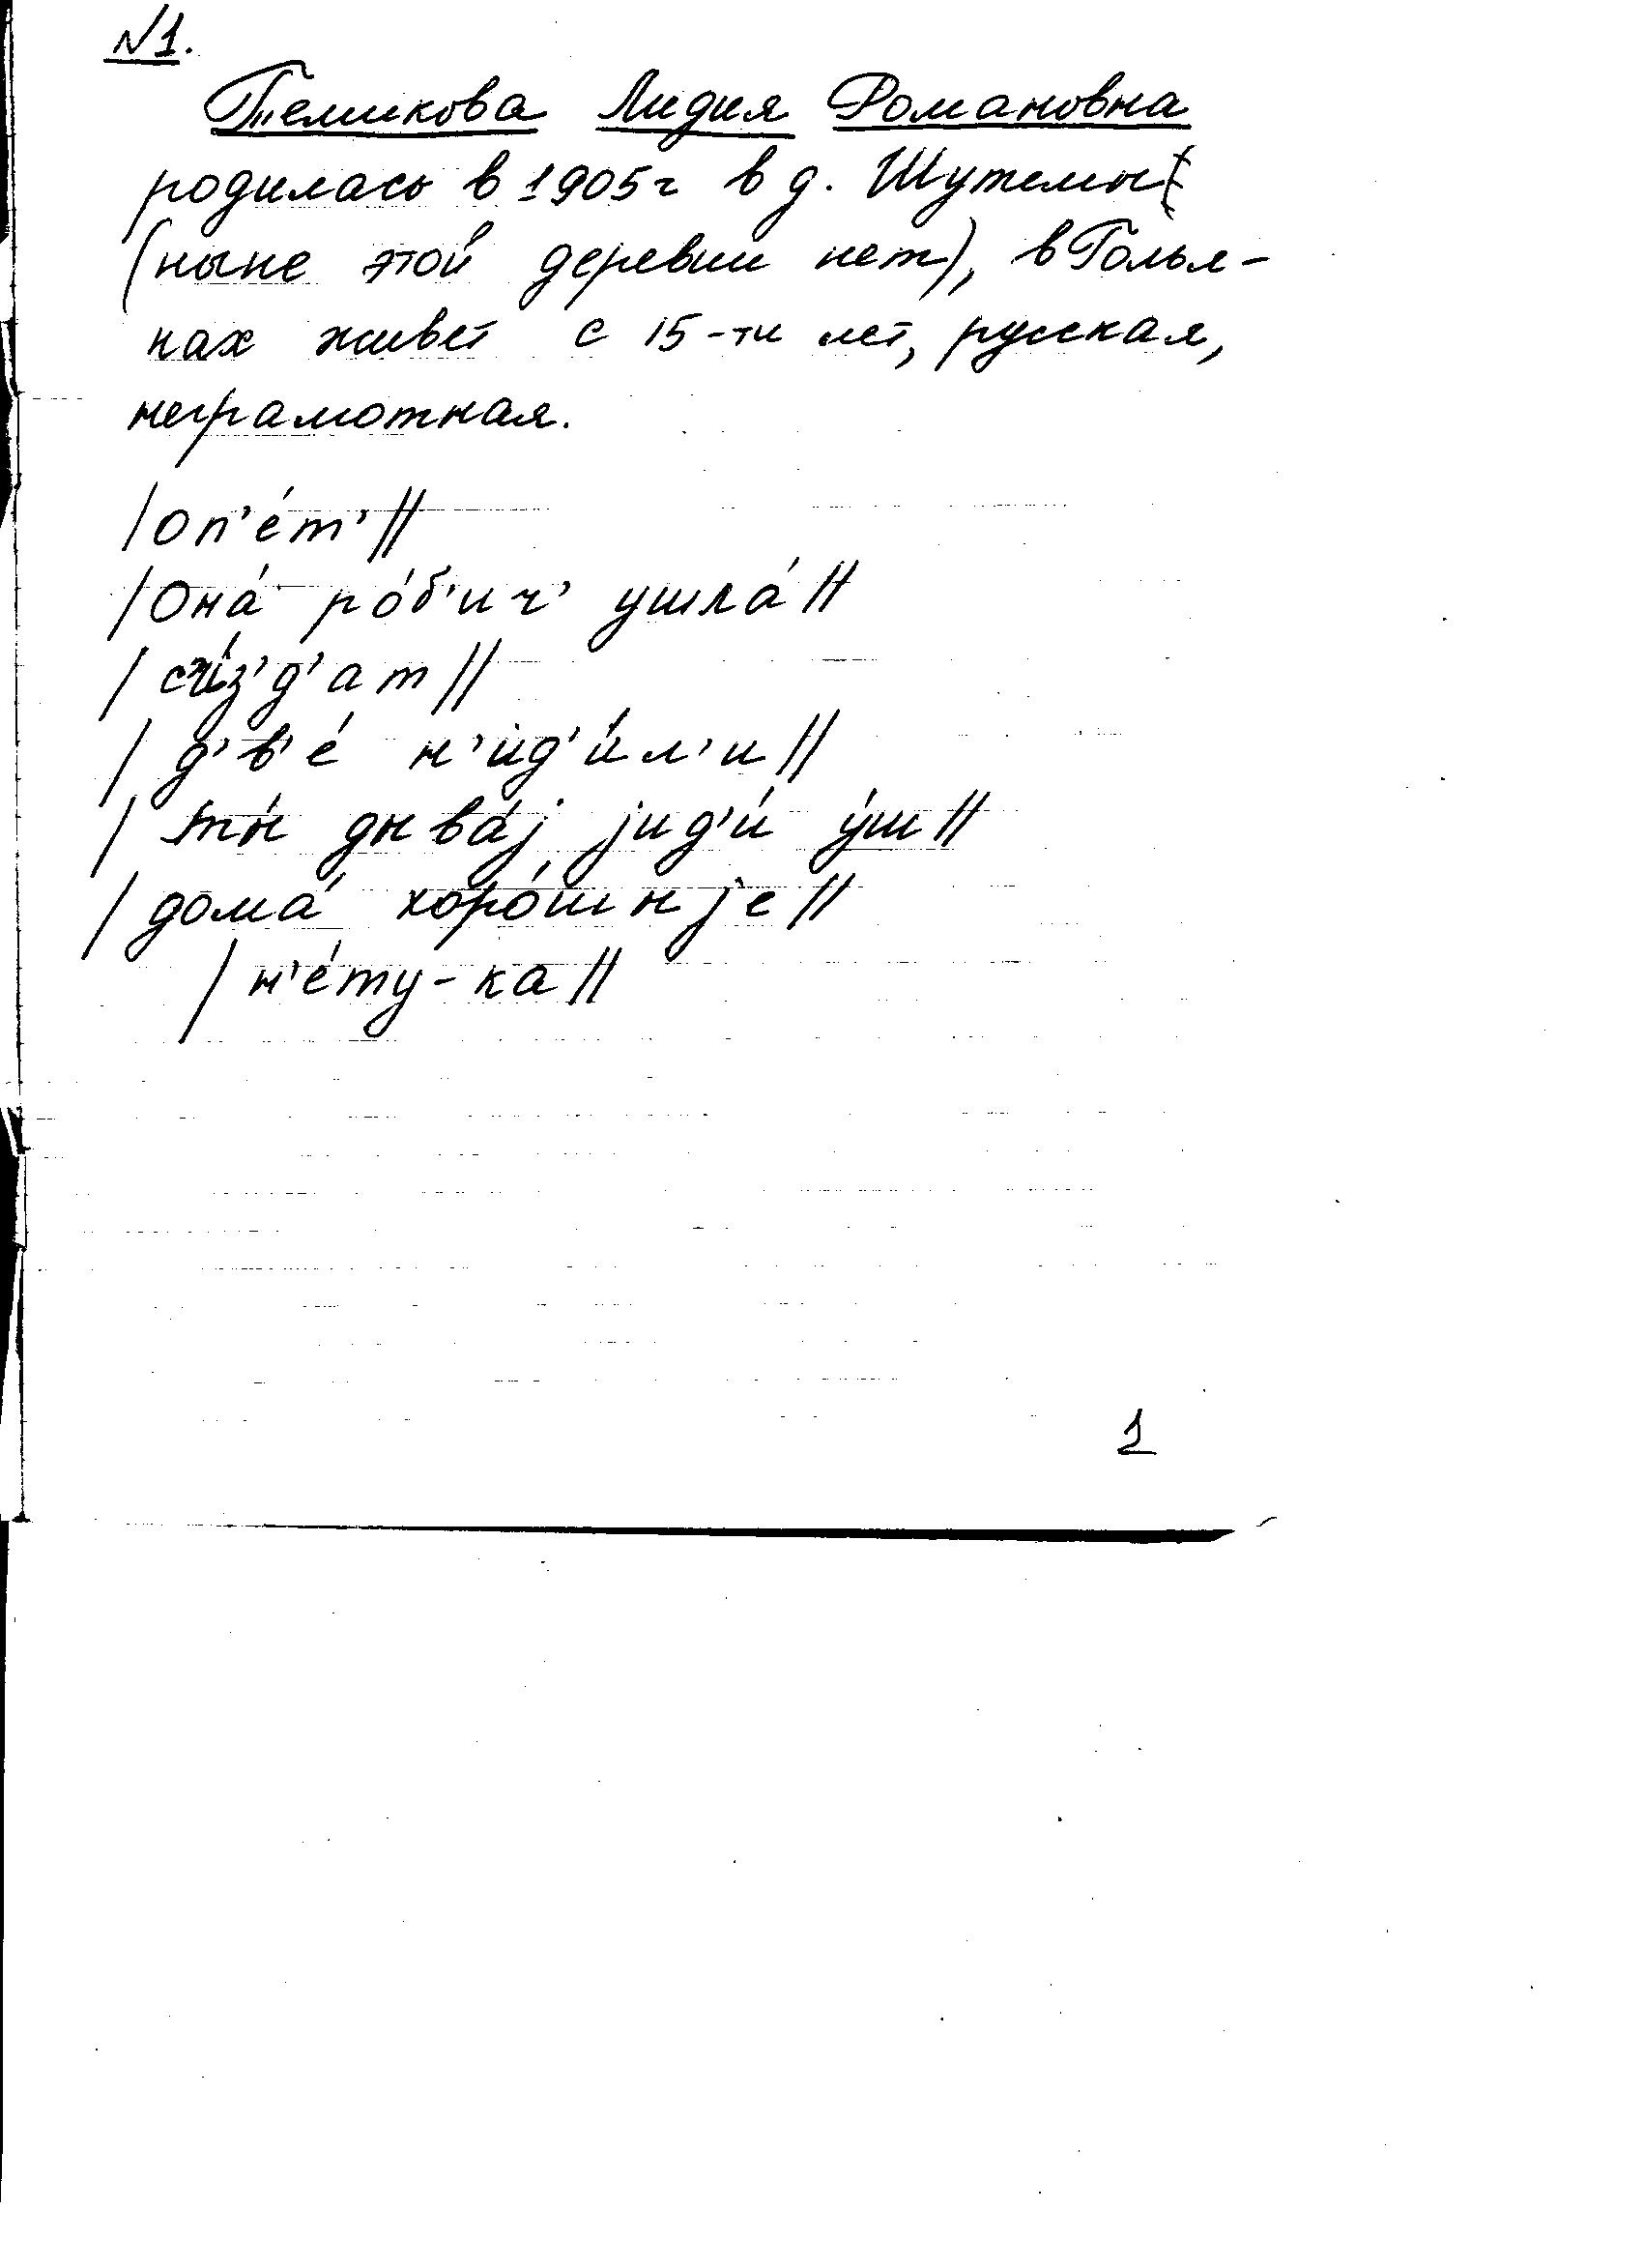 №1.
Теликова Лидия Романовна
родилась в 1905г в д. Шутемы
(ныне этой деревни нет), в Голья-
нах живет с 15-ти лет, русская,
неграмотная.
|оп’е́т’||
|она́ ро́б’ич’ ушла́||
|сйз’д’ат||
|д’в’е́ н’ид’и́л’и||
|ты́ дыва́j jид’и́ у́ш||
|дома́ хоро́шыjе||
|н’е́ту-ка||
1